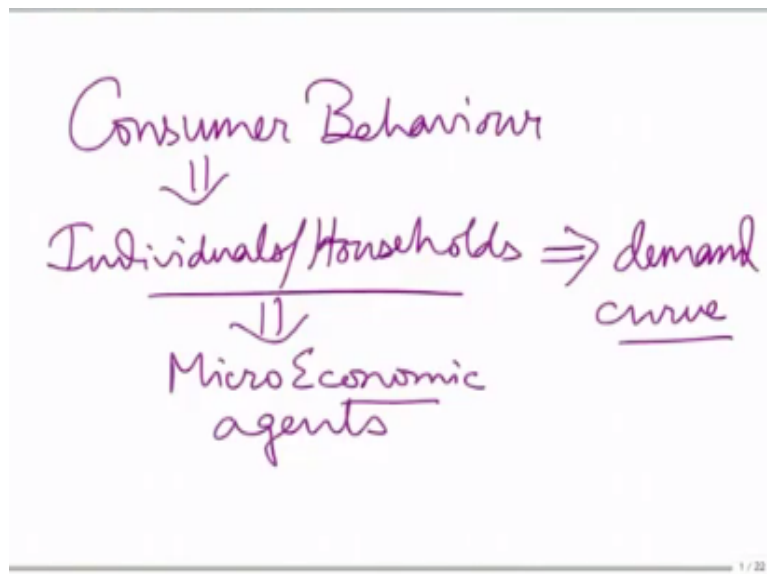 Consumer Behaviour
⇓
Individuals/Households ⇒ demand
curve
⇓
MicroEconomic
agents
1 / 22